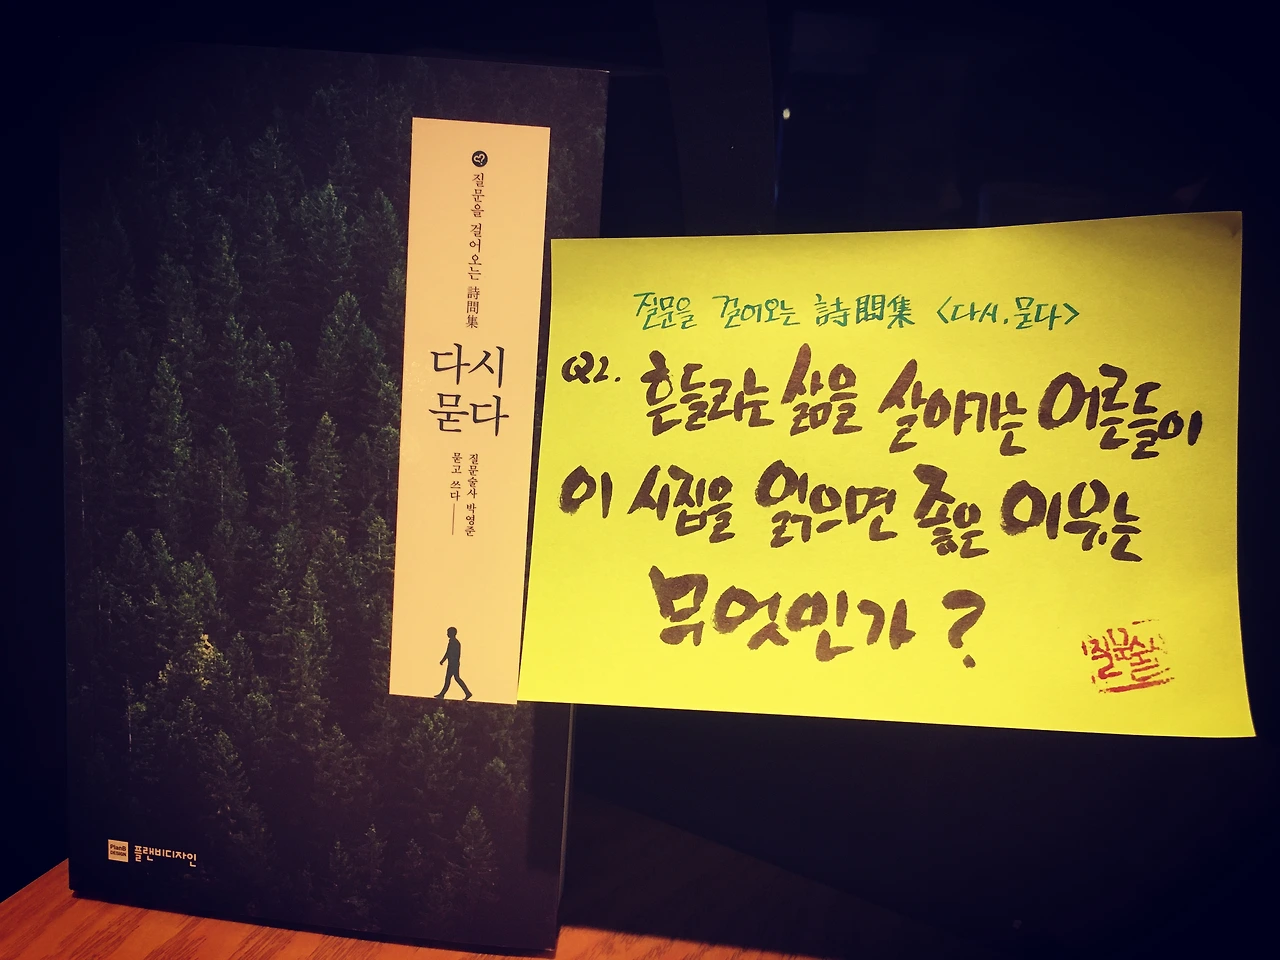 질문을 걸어오는 詩問集
다시
묻다
질문술사 박영준
묻고 쓰다
PlanB
DESIGN
플랜비디자인
질문을 걸어오는 詩問集 <다시, 묻다>
Q2. 흔들리는 삶을 살아가는 어른들이
이 시집을 읽으면 좋은 이유는
무엇인가?
질문술사